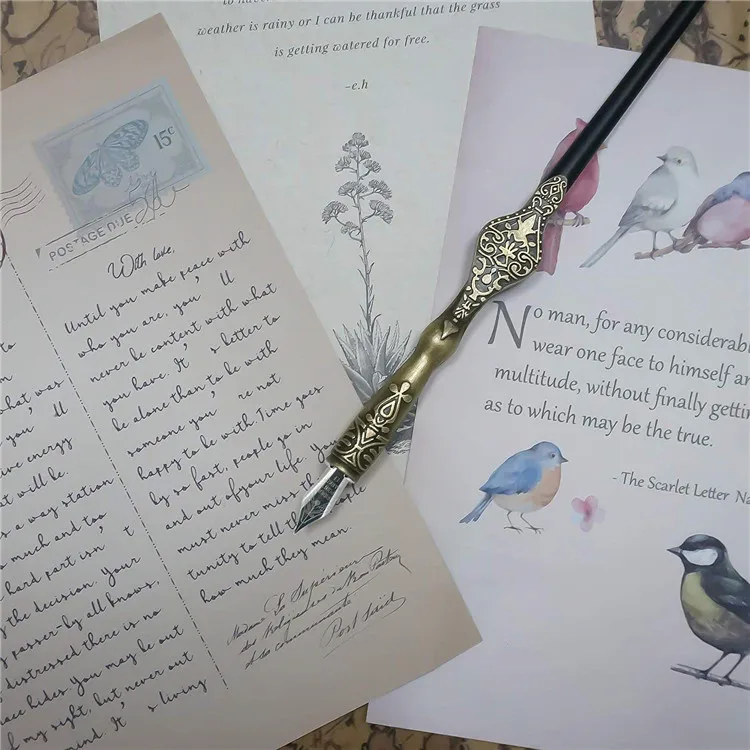 weather is rainy or I can be thankful that the grass
is getting watered for free.
-e.h
15c
POSTAGE DUE
With love,
Until you make peace with
who you are, you' ll
never be content with what
you have. It' s better to
be alone than to be with
someone you' re not
happy to be with. Time goes
by so fast, people go in
and out of your life. You
must never miss the
tunity to tell the
how much they mean.
Le Supérieur
Post Said
what was
you' ll
ive energy
t will be.
s a way station
o much and too
hard part isn' t
g the decision. Your
y passer-by all knows,
distressed there is no
ace hides You may be out
f my sight, but never out
mind. It' s living
No man, for any considerabl
wear one face to himself an
multitude, without finally gettin
as to which may be the true.
- The Scarlet Letter Na